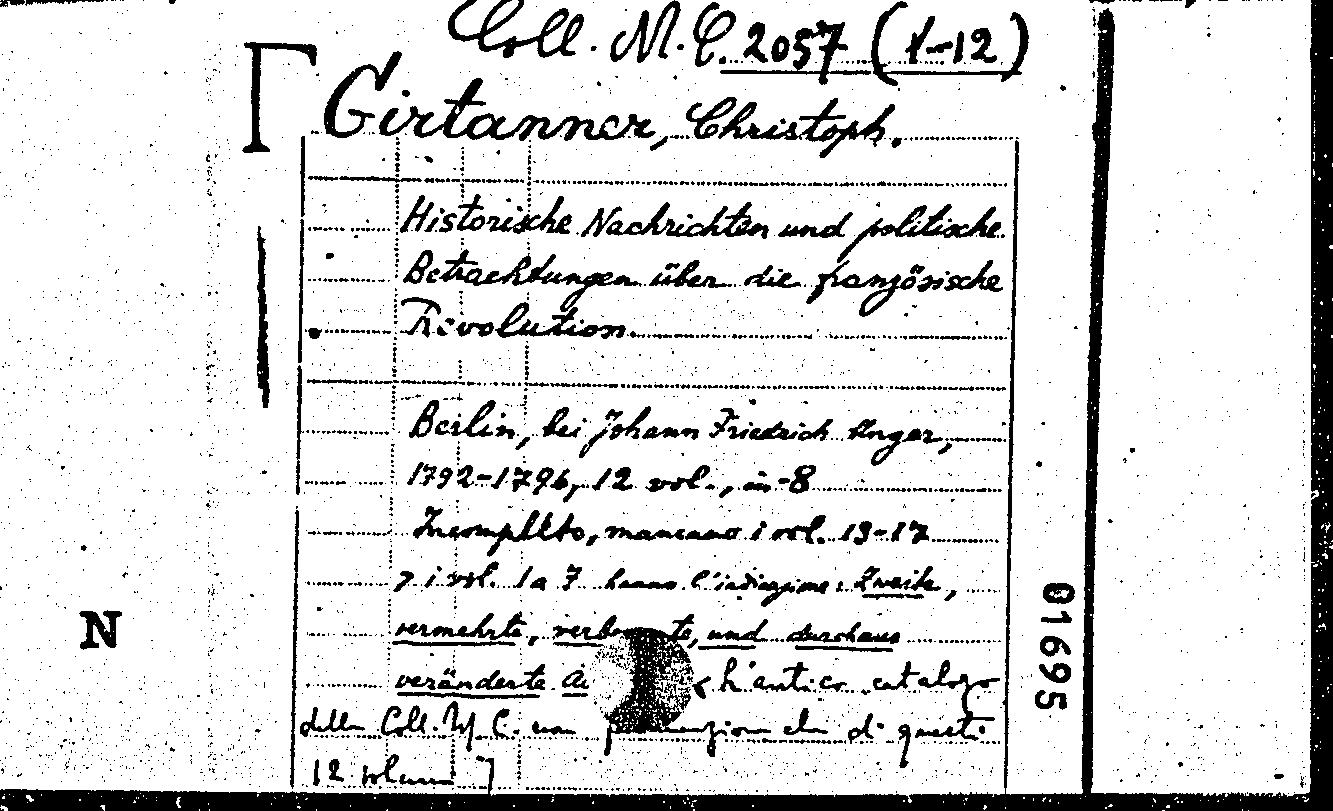 Coll. M. C. 2057 (1-12)
Girtanner, Christoph.
Historische Nachrichten und politische
Betrachtungen über die französische
Revolution.
Berlin, bei Johann Friedrich Unger,
1792-1796, 12 vol., in-8
Incompleto, mancano i vol. 13-17
i vol. 1 a 7 hanno l'indicazione: Zweite,
vermehrte, und durchaus
veränderte L'antico catalogo
della Coll. M. C. non che di questi
12 volumi]
N
01695